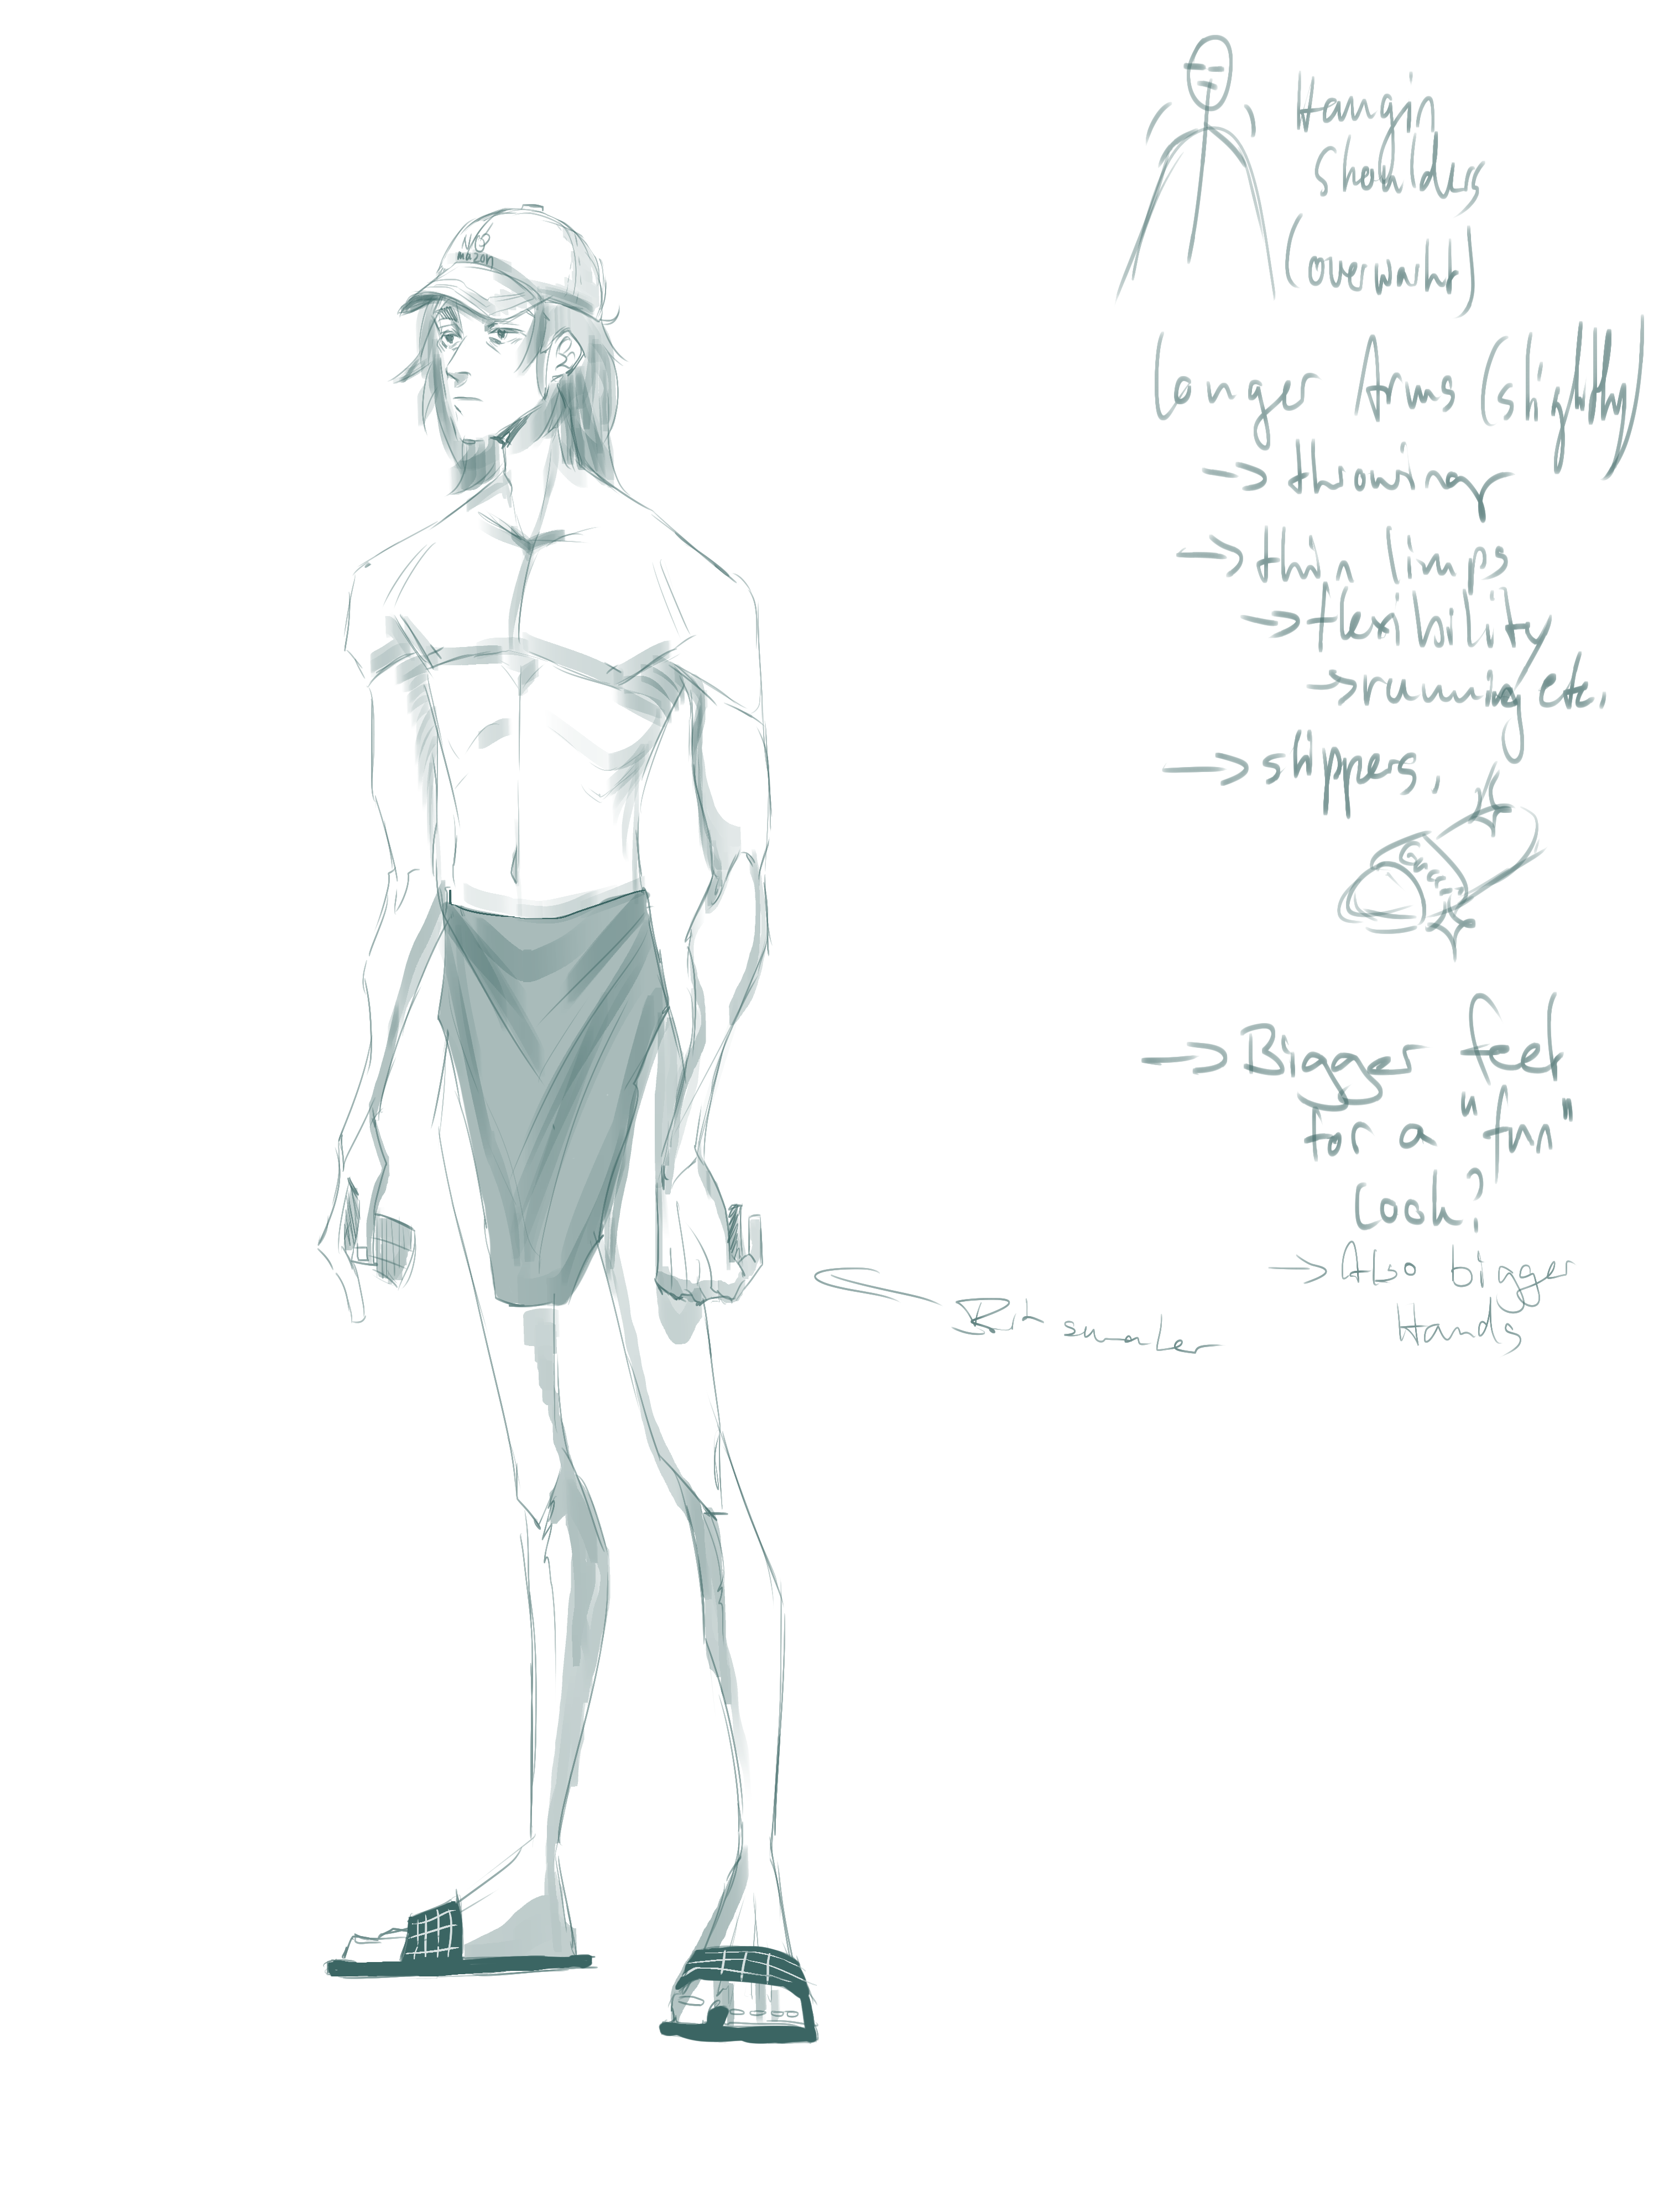 mazon
Hangin
Shoulders
(overwork)
Longer Arms (slightly)
→ throwing
→ thin limps
→ flexibility
→ running etc.
→ slippers,
→ Bigger feet
for a "fun"
Look?
→ Also bigger
Hands